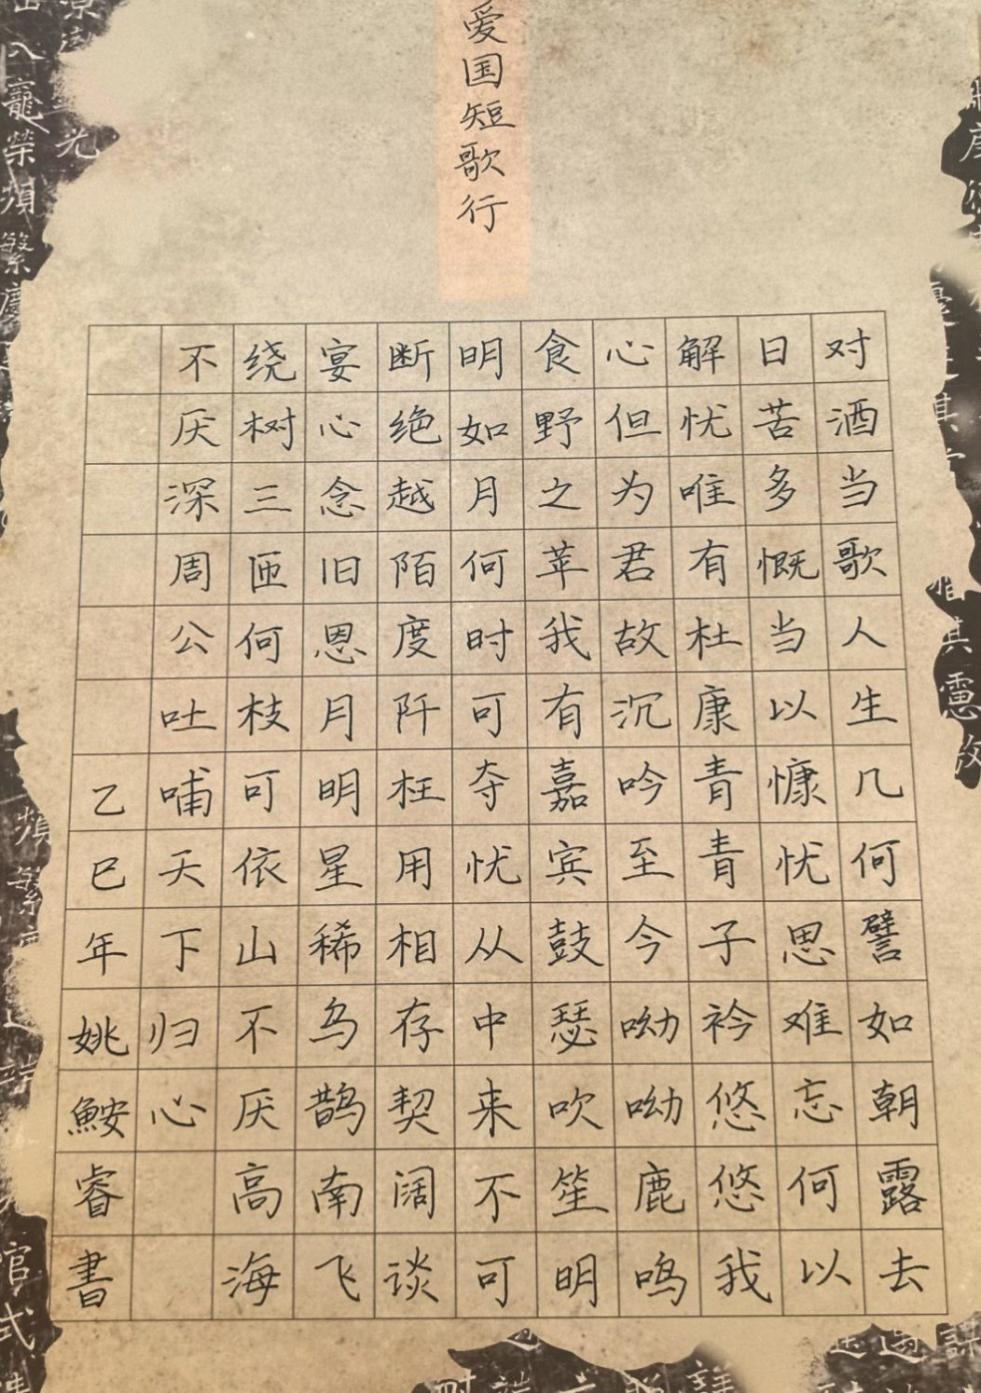 爱国短歌行
对酒当歌人生几何譬如朝露去
日苦多慨当以慷忧思难忘何以
解忧唯有杜康青青子衿悠悠我
心但为君故沉吟至今呦呦鹿鸣
食野之苹我有嘉宾鼓瑟吹笙明
明如月何时可夺忧从中来不可
断绝越陌度阡枉用相存契阔谈
宴心念旧恩月明星稀乌鹊南飞
绕树三匝何枝可依山不厌高海
不厌深周公吐哺天下归心
乙巳年姚鮟睿書